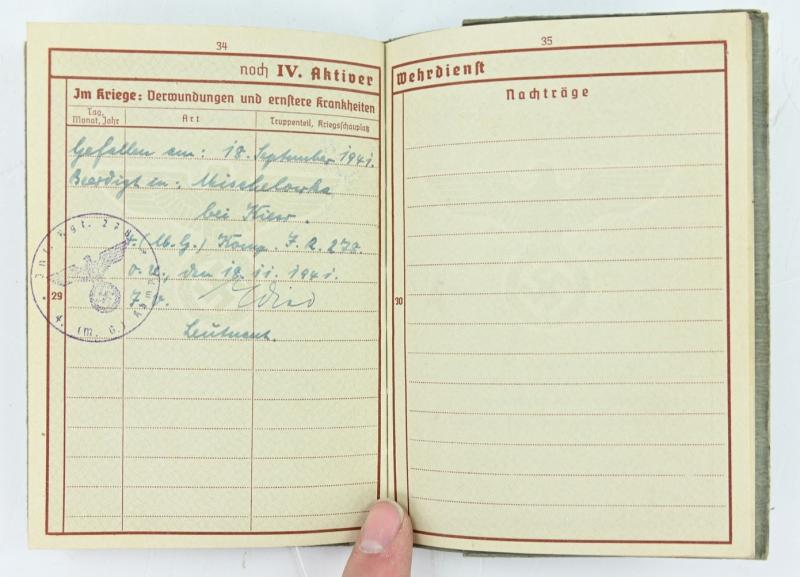 34
noch IV. Aktiver
Im Kriege: Verwundungen und ernstere Krankheiten
Tag, Monat, Jahr
Art
Truppenteil, Kriegsschauplatz
Gefallen am: 18. September 1941.
Beerdigt in: Mischelowka
bei Kiew.
4. (M. G.) Komp. I. R. 278.
O. U., den 18. 11. 1941.
Leutnant.
29
Inf. Rgt. 278
4. (M. G.) Komp
35
Wehrdienst
Nachträge
30